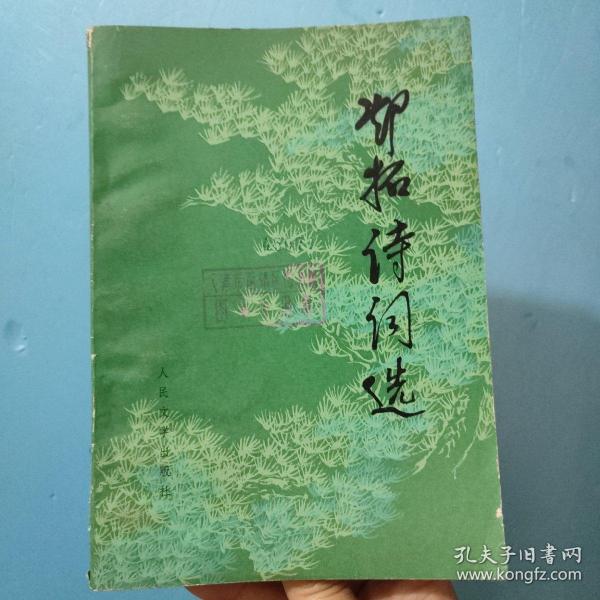 邓拓诗词选
人民文学出版社
孔夫子旧書网
www.kongfz.com